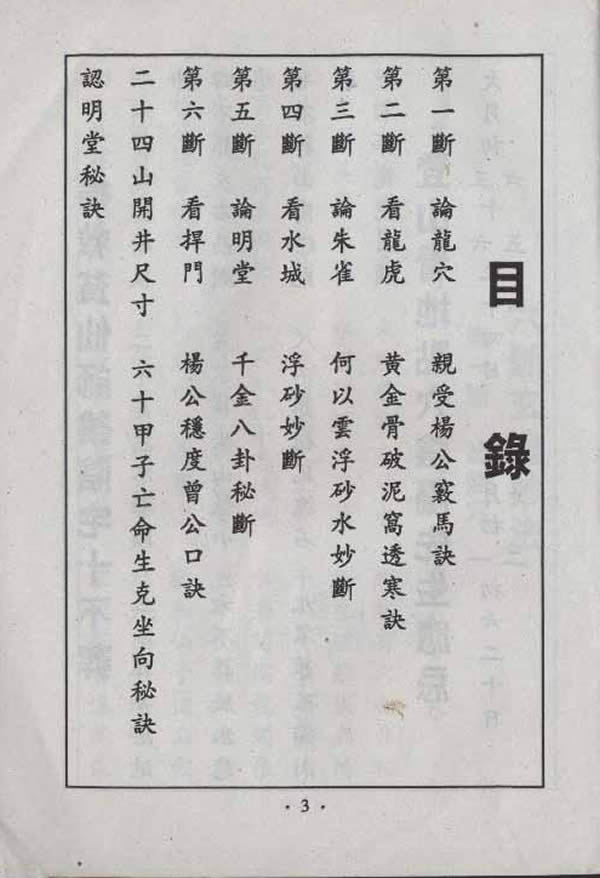 目錄
第一斷 論龍穴 親受楊公竅馬訣
第二斷 看龍虎 黃金骨破泥窩透寒訣
第三斷 論朱雀 何以雲浮砂水妙斷
第四斷 看水城 浮砂妙斷
第五斷 論明堂 千金八卦秘斷
第六斷 看捍門 楊公穩度曾公口訣
二十四山開井尺寸 六十甲子亡命生克坐向秘訣
認明堂秘訣
·3·